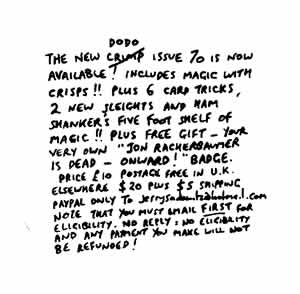 DODO
THE NEW CRIMP ISSUE 70 IS NOW
AVAILABLE! INCLUDES MAGIC WITH
CRISPS!! PLUS 6 CARD TRICKS,
2 NEW SLEIGHTS AND HAM
SHANKER'S FIVE FOOT SHELF OF
MAGIC!! PLUS FREE GIFT – YOUR
VERY OWN "JON RACHERBAUMER
IS DEAD – ONWARD!" BADGE.
PRICE £10 POSTAGE FREE IN U.K.
ELSEWHERE $20 PLUS $5 SHIPPING
PAYPAL ONLY TO
NOTE THAT YOU MUST EMAIL FIRST FOR
ELIGIBILITY. NO REPLY = NO ELIGIBILITY
AND ANY PAYMENT YOU MAKE WILL NOT
BE REFUNDED!